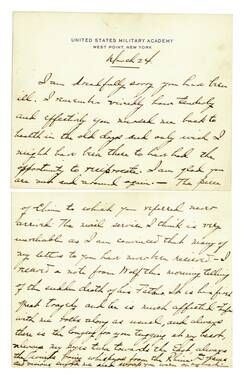 UNITED STATES MILITARY ACADEMY
WEST POINT, NEW YORK
March 24
I am dreadfully sorry you had been
ill. I remember vividly how tenderly
and effectively you nursed me back to
health in the old days and only wish I
might have been there to have had the
opportunity to reciprocate. I am glad you
are now and around again — The piece
of to which you referred never
arrived. The mail service I think is very
unreliable as I am convinced that many of
my letters to you have never been received — I
received a note from Wolf this morning telling
of the sudden death of his Father. It is his first
great tragedy and he is much affected. Life
with me rolls along as usual, and always
there is the longing for you tugging at my heart,
my eyes towards the East, always
the from the Rhine —